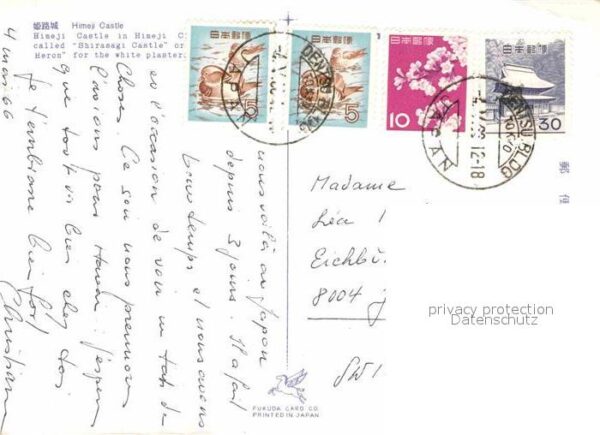 姫路城 Himeji Castle
Himeji Castle in Himeji C
called "Shirasagi Castle" or
Heron" for the white plaster.
日本郵便
5
日本郵便
5
日本郵便
10
日本郵便
30
JAPAN
DENTSU BLDG
TOKYO
JAPAN
12-18
郵便
4 mars 66
nous voilà au Japon
depuis 3 jours. Il a fait
beau temps et nous avons
eu l'occasion de voir un tas de
choses. Ce soir nous prenons
l'avion pour Hawaï. J'espère
que tout va bien chez toi
Je t'embrasse bien fort
Christiane
Madame
Léa
Eichbü
8004
SWI
privacy protection
Datenschutz
FUKUDA CARD CO.
PRINTED IN JAPAN